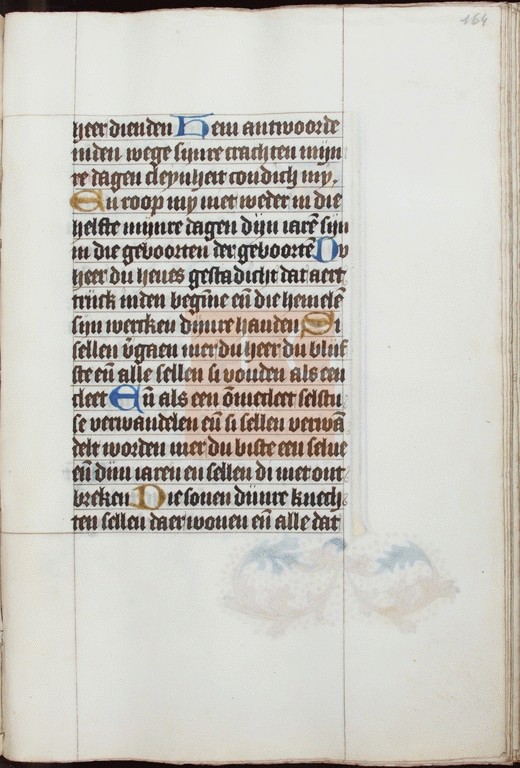 164
heer dienden Hem antwoorde
inden wege sijnre crachten mijn
re dagen cleynheit condich my.
En roop my niet weder in die
helfte mijnre dagen dijn iarē sijn
in die geboorten der geboortē Du
heer du heues gestadicht dat aert
trijck inden begīne eñ die hemele
sijn wercken dijnre handen Si
sellen v̄gaen mer du heer du blijf
ste eñ alle sellen si vouden als een
cleet Eñ als een ōmecleet selstu
se verwandelen eñ si sellen verwā
delt worden mer du biste een selue
eñ dijn iaren en sellen di niet ont
breken Die sonen dijnre knech
ten sellen daer wonen eñ alle dat